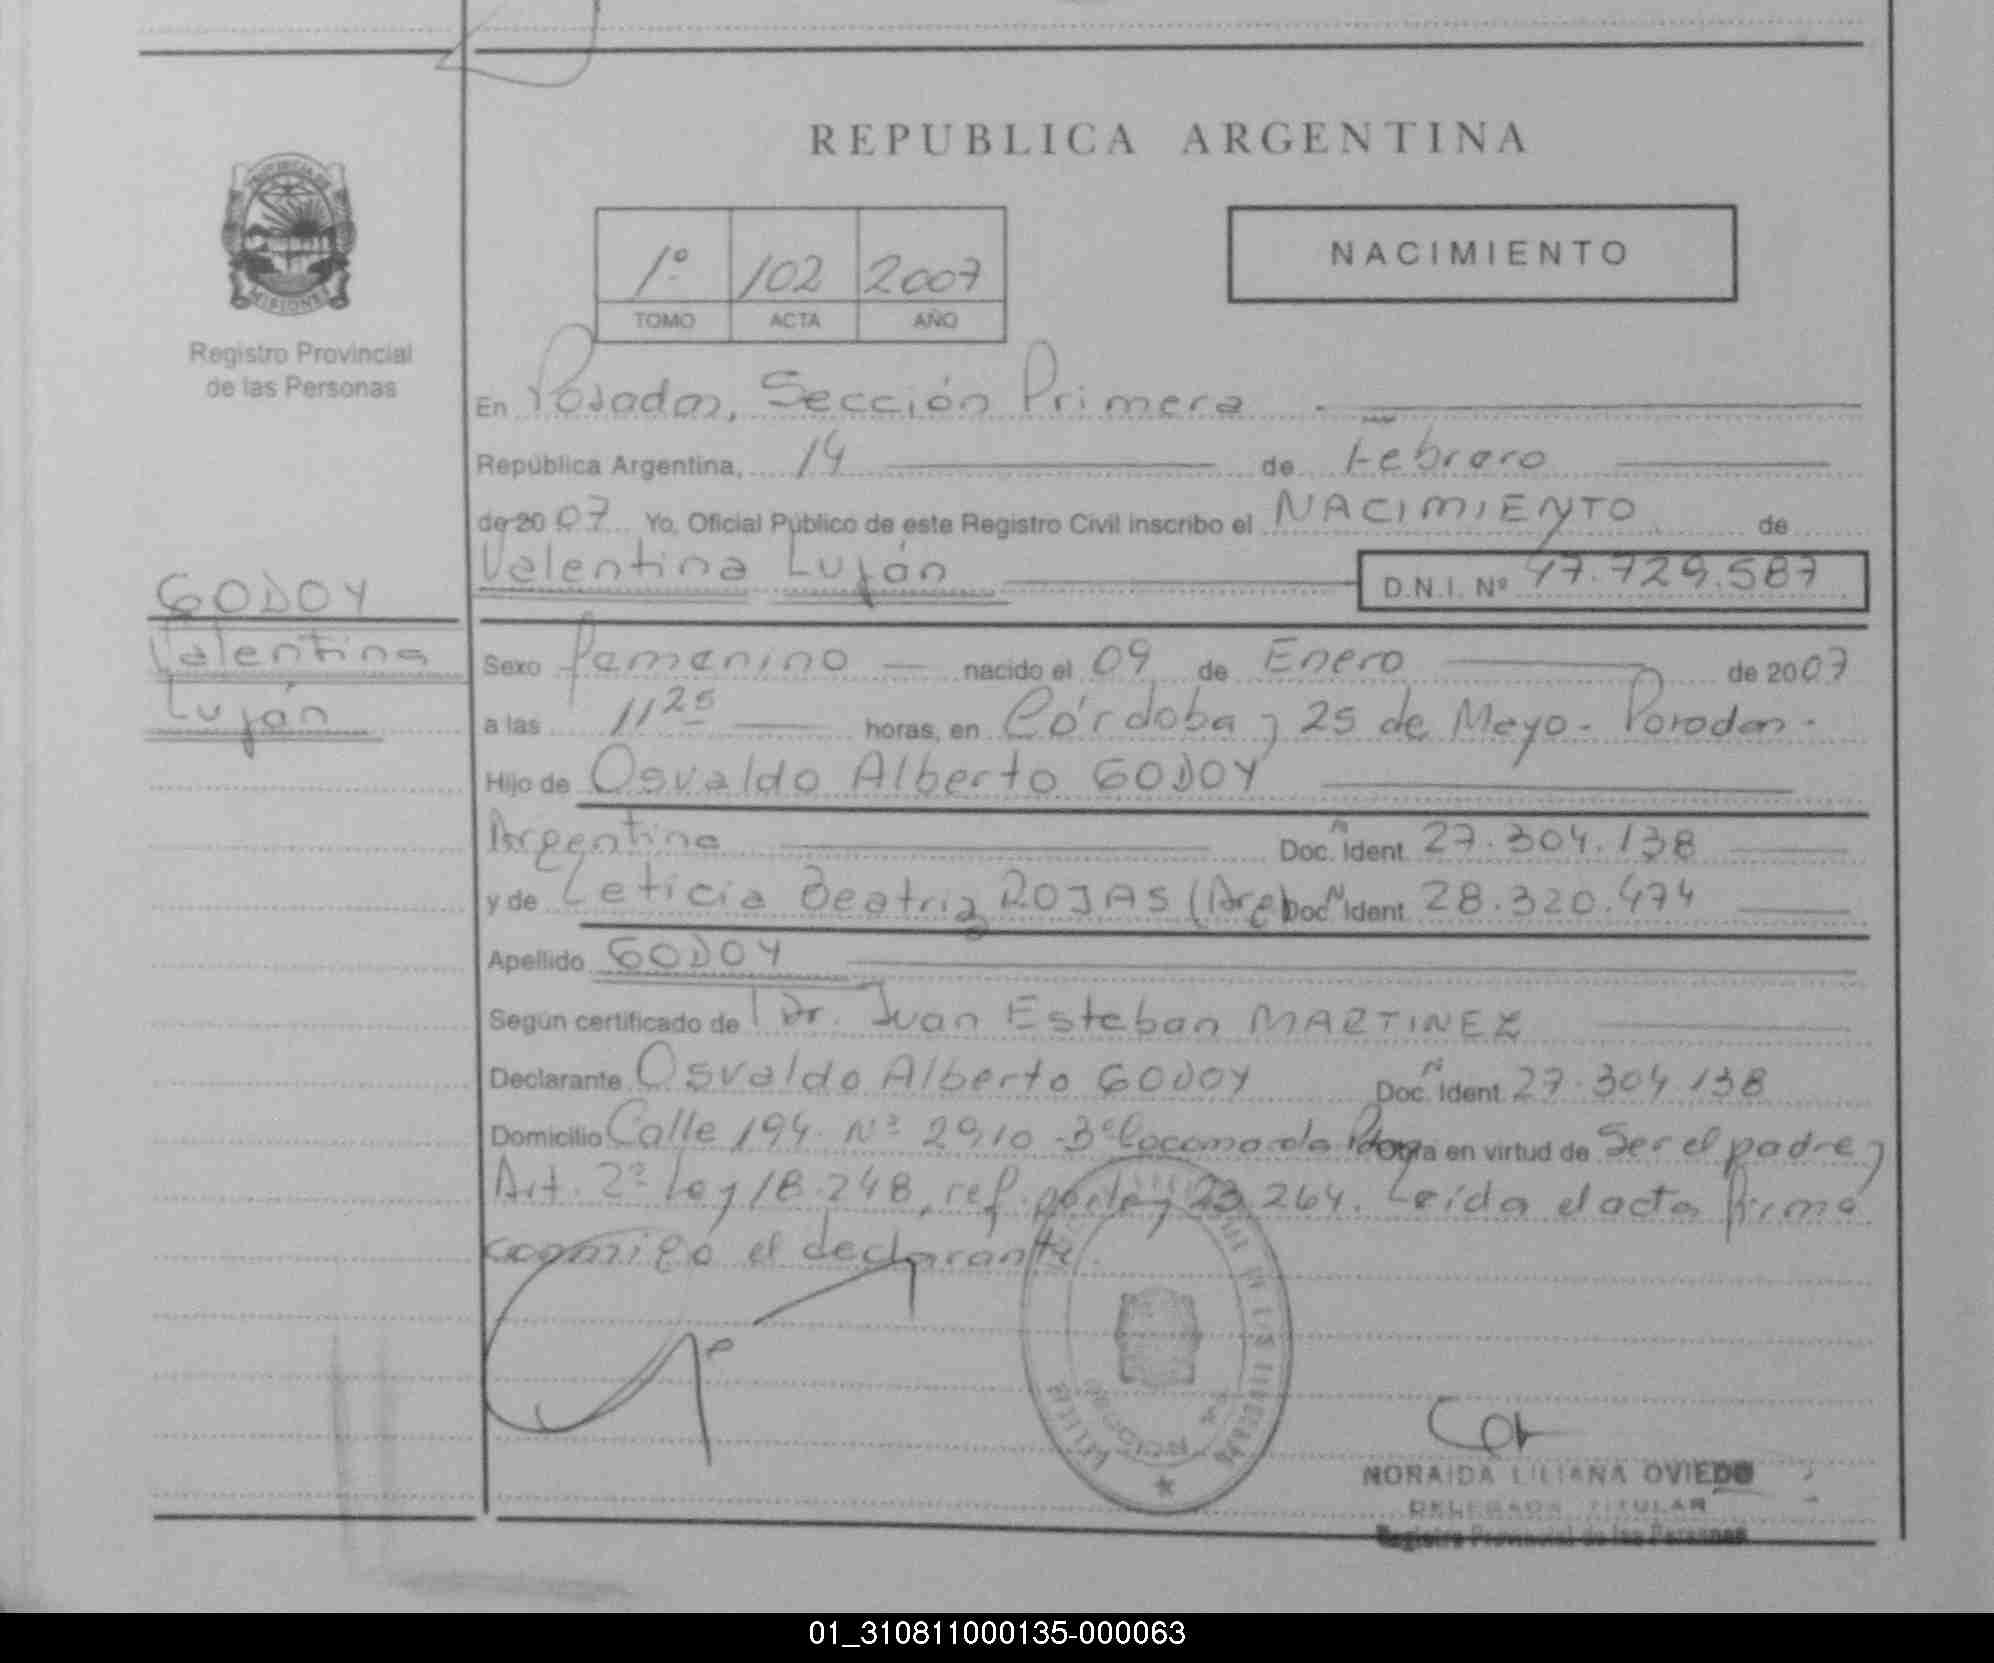 REPUBLICA ARGENTINA
PROVINCIA DE
MISIONES
Registro Provincial
de las Personas
1º 102 2007
TOMO ACTA AÑO
NACIMIENTO
En Posadas, Sección Primera
República Argentina, 14 de Febrero
de 2007 Yo, Oficial Público de este Registro Civil inscribo el NACIMIENTO de
Valentina Luján D.N.I. Nº 47.729.587
GODOY
Valentina
Luján
Sexo femenino nacido el 09 de Enero de 2007
a las 11 25 horas, en Córdoba y 25 de Mayo - Posadas -
Hijo de Osvaldo Alberto GODOY
Argentino Doc. Ident. 27.304.138
y de Leticia Beatriz ROJAS (Arg) Doc. Ident. 28.320.474
Apellido GODOY
Según certificado de Dr. Juan Esteban MARTINEZ
Declarante Osvaldo Alberto GODOY Doc. Ident. 27.304.138
Domicilio Calle 194 Nº 2910 Obra en virtud de Ser el padre y
Art. 2º Ley 18.248, ref. por ley 23.264. Leída el acta firma
conmigo el declarante.
NORAIDA LILIANA OVIEDO
DELEGADA TITULAR
Registro Provincial de las Personas
01_310811000135-000063